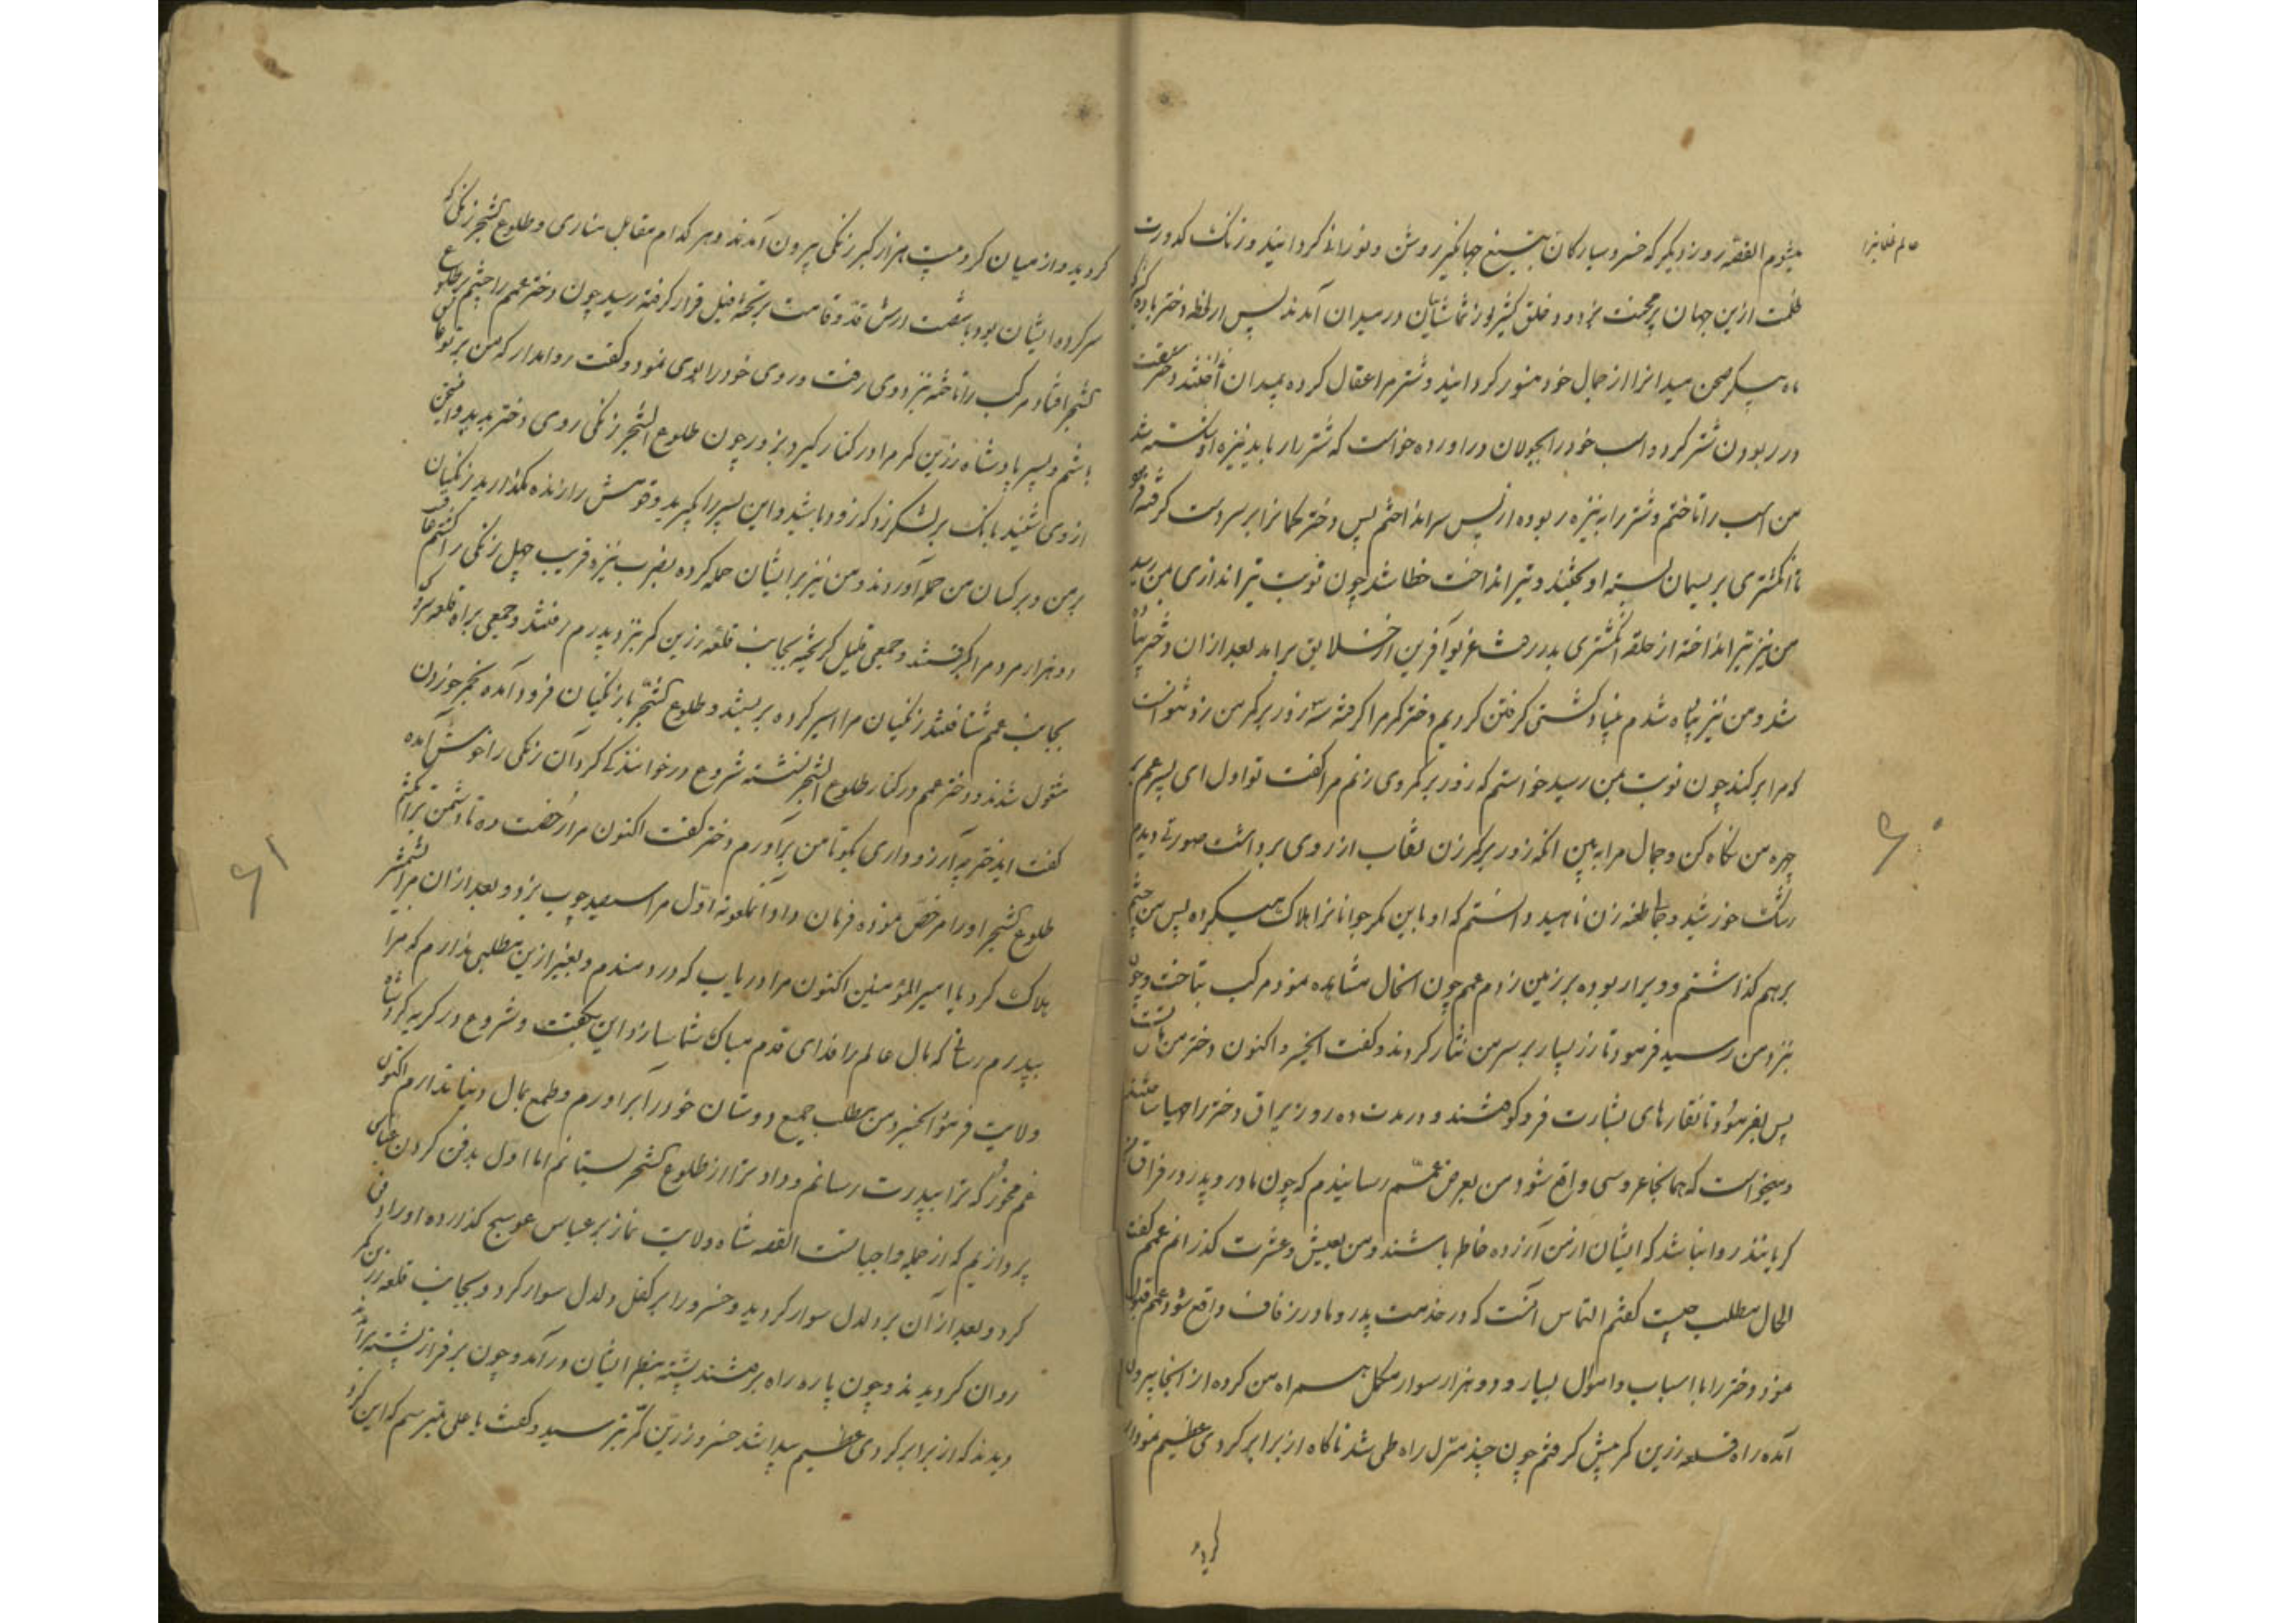 عالم ظلمانی را
میشوم القصه روز دیگر که خسرو سیارکان بتیغ جهانگیر روشن و نورانی کردانید و زنک کدورت
ظلمت ازین جهان پر محنت بزدود و خلق کثیر از تماشائیان در میدان آمدند پس از لحظه دختر با
ماه پیکر صحن میدانرا از جمال خود منور کردانید و شتر مرا عقال کرده بمیدان افکندند و دختر
در ربودن شتر کرد و اسب خود را بجولان دراورده خواست که شتر را رباید نیزه او شکسته شد
من اسب را تاختم و شتر را به نیزه ربوده از پس سر انداختم پس دختر کمانرا بر سر دست گرفته
تا انکشتری بریسمان بسته اویختند و تیر انداخت خطا شد چون نوبت تیر اندازی بمن رسید
من نیز تیر انداخته از حلقه انکشتری بدر رفت غریو آفرین از خلایق برامد بعد ازان دختر پیاده
شد و من نیز پیاده شدم بنیاد کشتی گرفتن کردیم دختر کمر مرا گرفته سه زور بر کمر من زد نتوانست
که مرا بر کند چون نوبت بمن رسید خواستم که زور بر کمر وی زنم مرا گفت تو اول ای پسر عم بر
چهره من نگاه کن و جمال مرا به بین انکه زور بر کمر زن نقاب از روی برداشت صورتی دیدم
رشک خورشید و جمال طعنه زن ناهید دانستم که او باین مکر جوانانرا هلاک میکرده پس من چشم
برهم گذاشتم و ویرا ربوده بر زمین زدم عمم چون انحال مشاهده نمود مرکب بتاخت و چون
نزد من رسید فرمود تا زر بسیار بر سر من نثار کردند و گفت ای خسرو اکنون دختر من از تست
پس بفرمود تا نقارهای بشارت فرو کوفتند و در مدت ده روز یراق دختر را مهیا ساختند
و میخواست که همانجا عروسی واقع شود من بعرض عمم رسانیدم که چون مادر و پدر در فراق من
گریانند روا نباشد که ایشان از من آزرده خاطر باشند و من بعیش و عشرت گذرانم عمم گفت
الحال مطلب چیست گفتم التماس آنست که در خدمت پدر و مادر زفاف واقع شود عمم قبول
نمود دختر را با اسباب و اموال بسیار و دو هزار سوار مکمل همراه من کرده از انجا بیرون
آمده راه قلعه زرین کمر پیش گرفتم چون چند منزل راه طی شد ناگاه از برابر کردی عظیم نمودار
کردید
۶۰
کردید و از میان کرد بیست هزار کبر زنکی بیرون آمدند و هر کدام مقابل مناری و طلوع الشجر زنکی که
سر کرده ایشان بود با شصت ارش قد و قامت بر تخته فیل قرار گرفته رسید چون دختر عمم را چشم بر طلوع
الشجر افتاد مرکب را تاخته نزد وی رفت و روی خود را بوی نمود و گفت روا مدار که من بر تو عاشق
باشم و پسر پادشاه زرین کمر مرا در کنار گیرد بزور چون طلوع الشجر زنکی روی دختر بدید و این سخن
از وی شنید بانک بر لشکر زد که زود باشید و این پسر را بگیرید و قومش را زنده مگذارید زنکیان
بر من و بر کسان من حمله آوردند و من نیز بر ایشان حمله کرده بضرب نیزه قریب چهل زنکی را کشتم عاقبت
دو هزار مرد مرا گرفتند و جمعی قلیل گریخته بجانب قلعه زرین کمر نزد پدرم رفتند و جمعی براه قلعه
بجانب عمم شتافتند زنکیان مرا اسیر کرده بربستند و طلوع الشجر با زنکیان فرود آمده بخمر خوردن
مشغول شدند و دختر عمم در کنار طلوع الشجر نشسته شروع در خوانندگی کرد آن زنکی را خوش آمده
گفت ایدختر چه آرزو داری بگو تا من برآورم دختر گفت اکنون مرا رخصت ده تا دشمن ترا بکشم
طلوع الشجر او را مرخص نموده فرمان داد آنملعونه اول مرا سیصد چوب بزد و بعد ازان مرا بشمشیر
هلاک کرد یا امیر المؤمنین اکنون مرا دریاب که دردمندم و بغیر ازین مطلبی ندارم که مرا
به پدرم رسانی که مال عالم را فدای قدم مبارک شما سازد این بگفت و شروع در گریه کرد شاه
ولایت فرمود ای خسرو من مطلب جمیع دوستان خود را برآورم و طمع بمال دنیا ندارم اکنون
غم مخور که ترا به پدرت رسانم و داد ترا از طلوع الشجر بستانم اما اول بدفن کردن عباس
پردازیم که از جمله واجباتست القصه شاه ولایت نماز بر عباس عوسج گذارده او را دفن
کرد و بعد از آن بر دلدل سوار گردید و خسرو را بر کفل دلدل سوار کرد و بجانب قلعه زرین کمر
روان گردیدند و چون پاره راه برفتند پشته بنظر ایشان درآمد و چون بر فراز پشته برآمدند
دیدند که از برابر کردی عظیم پیدا شد خسرو زرین کمر بترسید و گفت یا علی میترسم که این کرد
۶۱